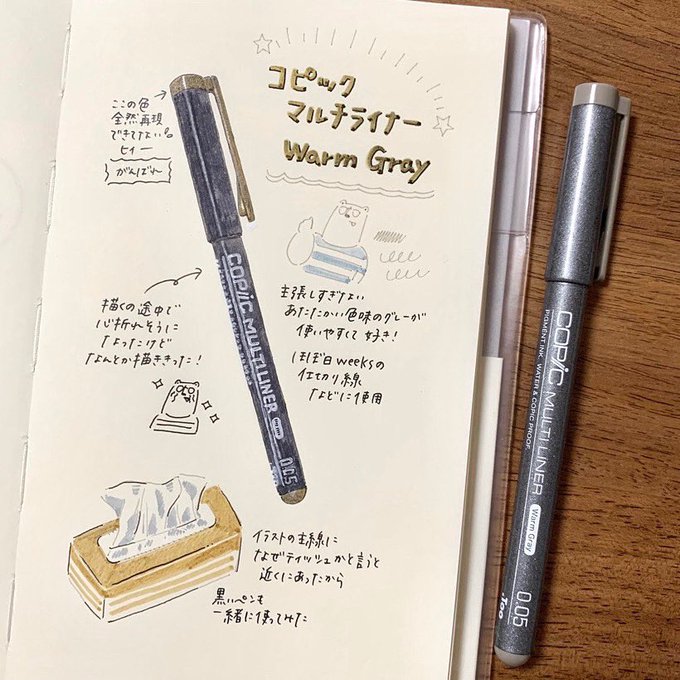 コピック
マルチライナー
Warm Gray
ここの色
全然再現
できてない。
ヒィー
がんばれ
COPIC MULTI LINER
0.05
描くの途中で
心折れそうに
なったけど
なんとか描ききった！
主張しすぎない
あたたかい色味のグレーが
使いやすくて好き！
ほぼ日weeksの
仕切り線
などに使用
イラストの主線に
なぜティッシュかと言うと
近くにあったから
黒いペンも
一緒に使ってみた
COPIC MULTI LINER
PIGMENT INK. WATER & COPIC PROOF.
Warm Gray
0.05
.Too